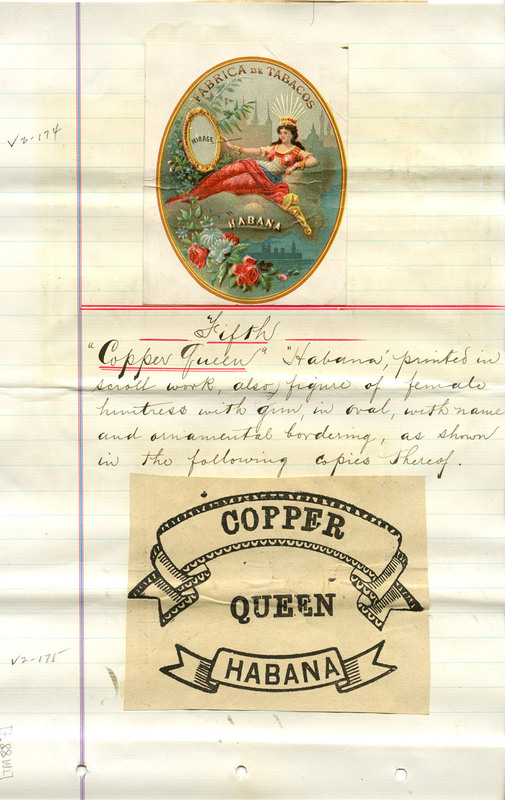 FABRICA DE TABACOS
MIRAGE
HABANA
√2-174
Fifth
"Copper Queen" "Habana", printed in
scroll work, also, figure of female
huntress with gun, in oval, with name
and ornamental bordering, as shown
in the following copies thereof.
COPPER
QUEEN
HABANA
√2-175